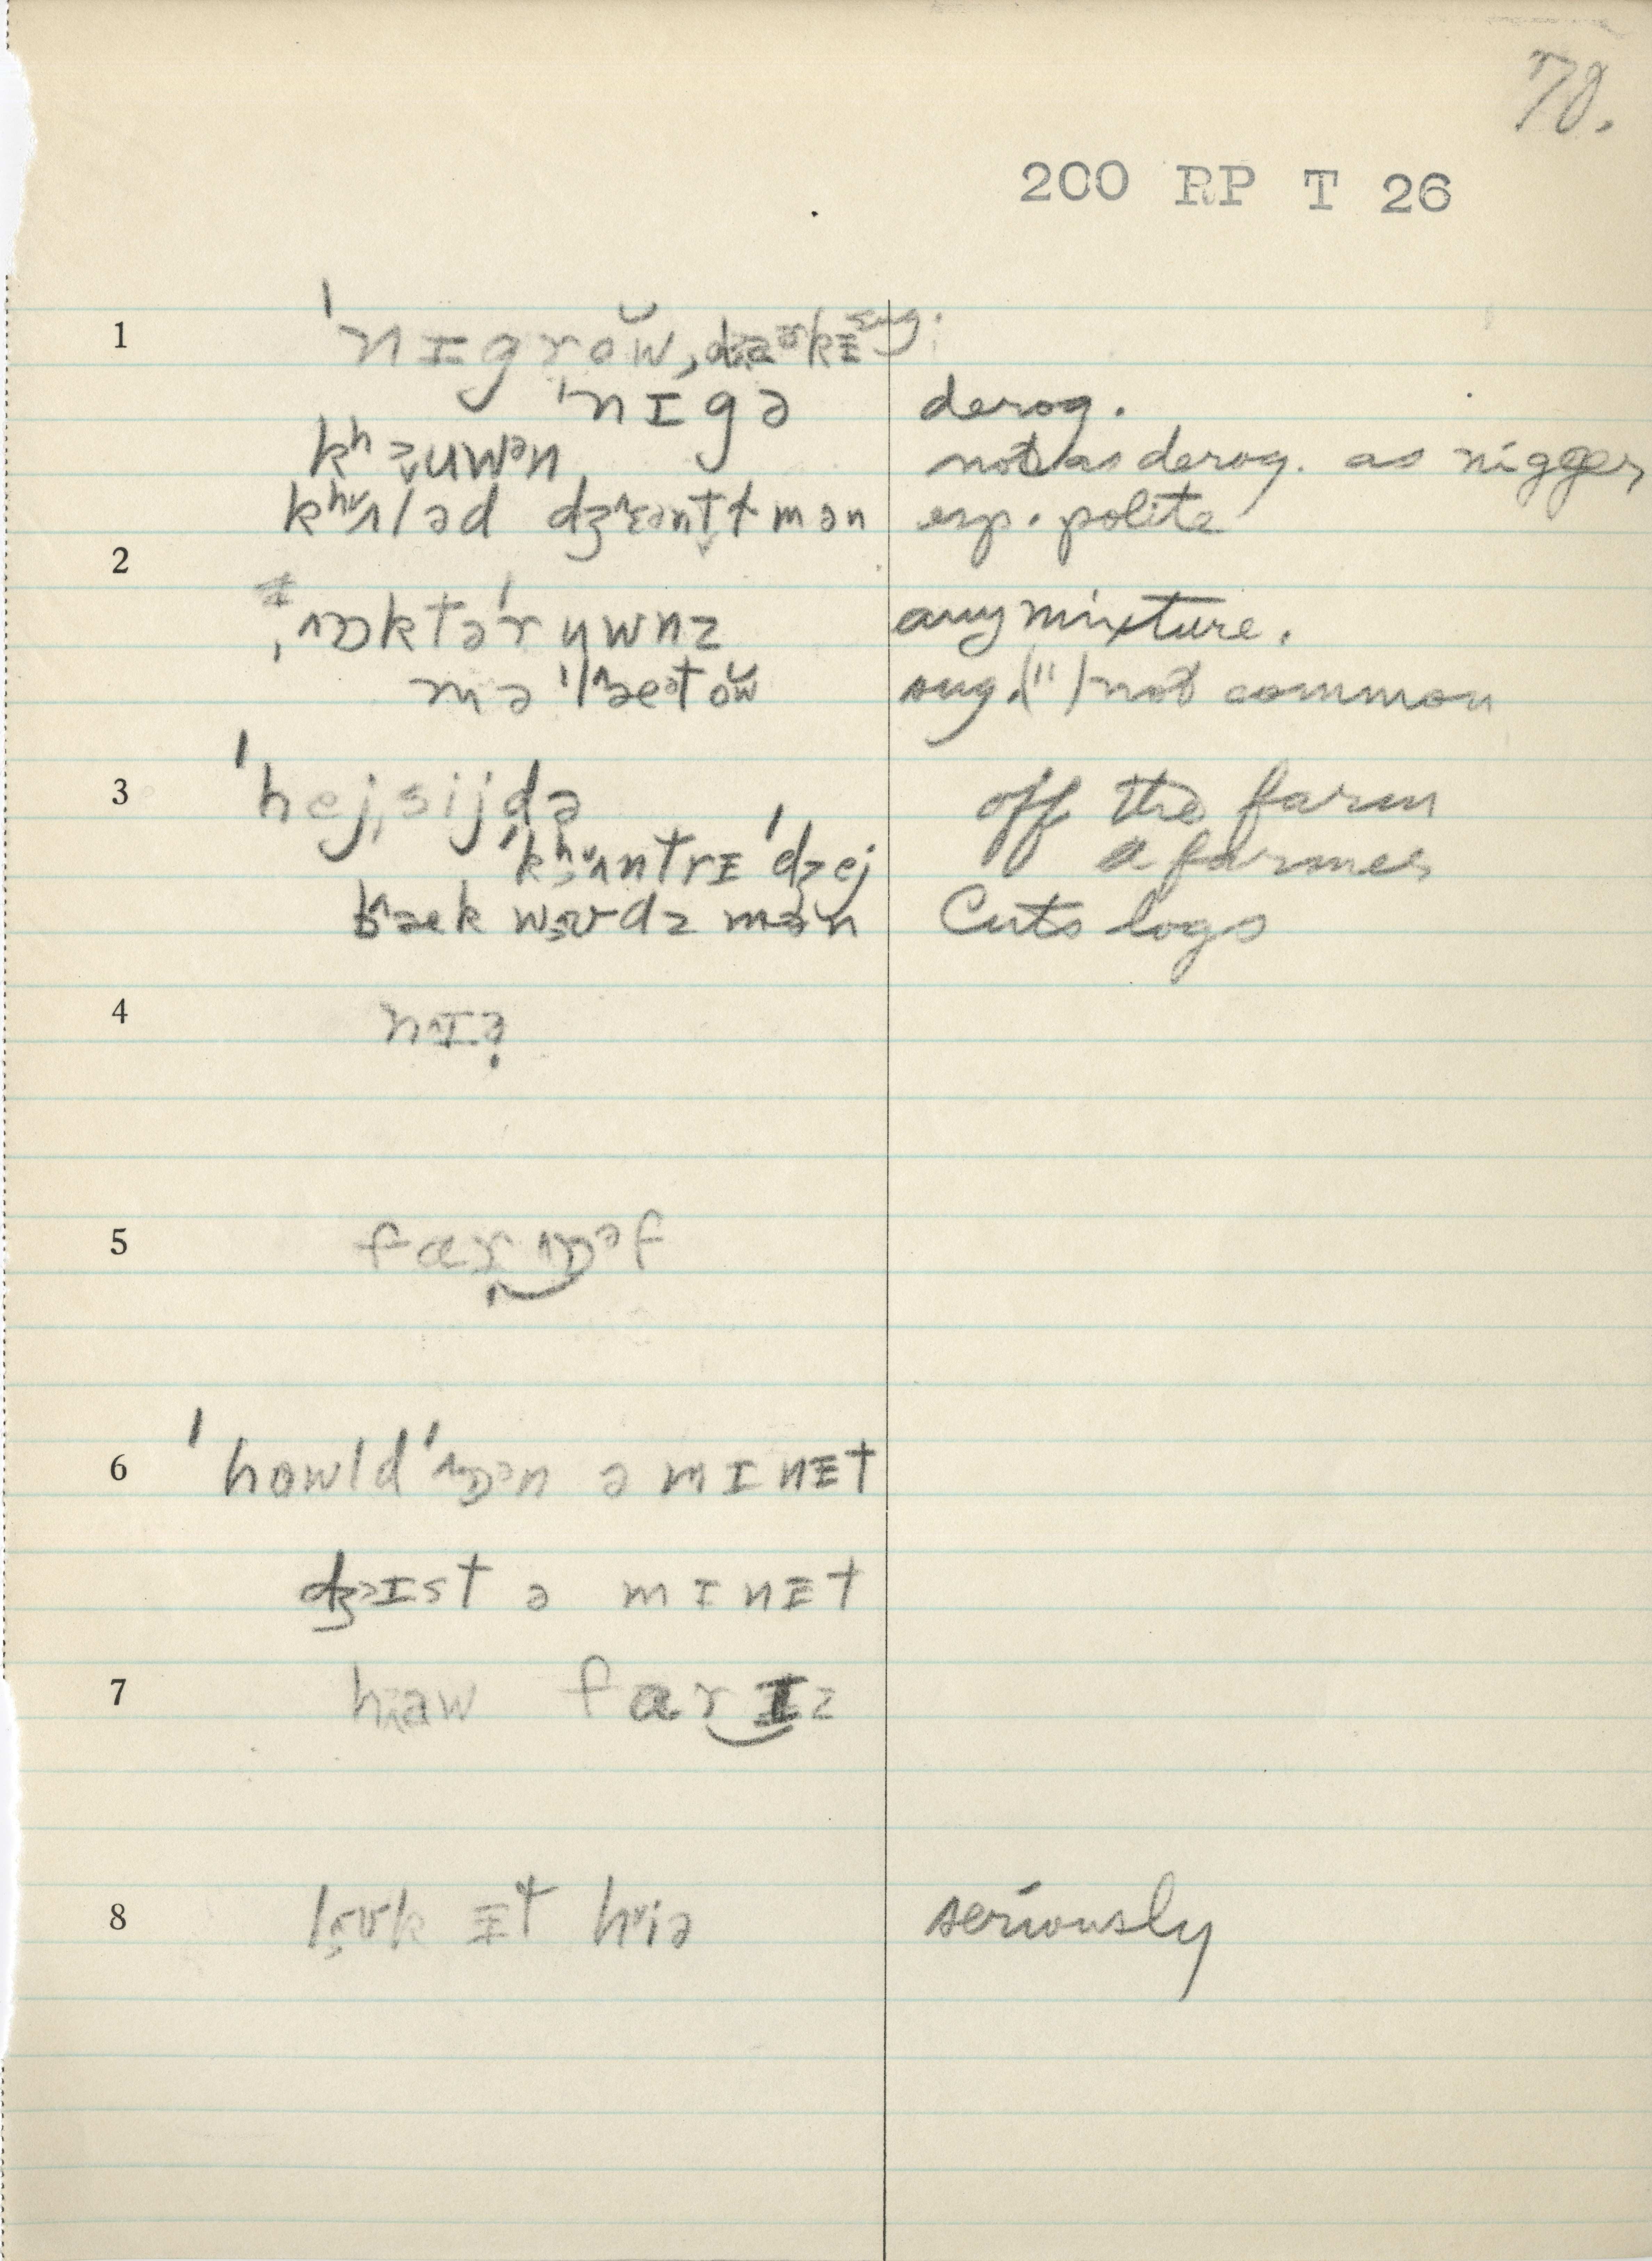 78.
200 RP T 26
1 ˈnɪgrow̆, da kɪ sug.
ˈnɪgə derog.
kʰəuwən not as derog. as nigger
kʰʌləd dʒɛəntɫmən esp. polite
2 ˌɒktəˈruwnz any mixture.
məˈlætow̆ sug. (") not common
3 ˈhejˌsijdə off the farm
ˈkʰʌntrɪ ˈdʒej a farmer
bæk wʊdz mən Cuts logs
4 nɪə
5 far ɒəf
6 ˈhowldˈɒən ə mɪnɪt
dʒɪst ə mɪnɪt
7 haw farɪz
8 lʊk ɪt hiə seriously